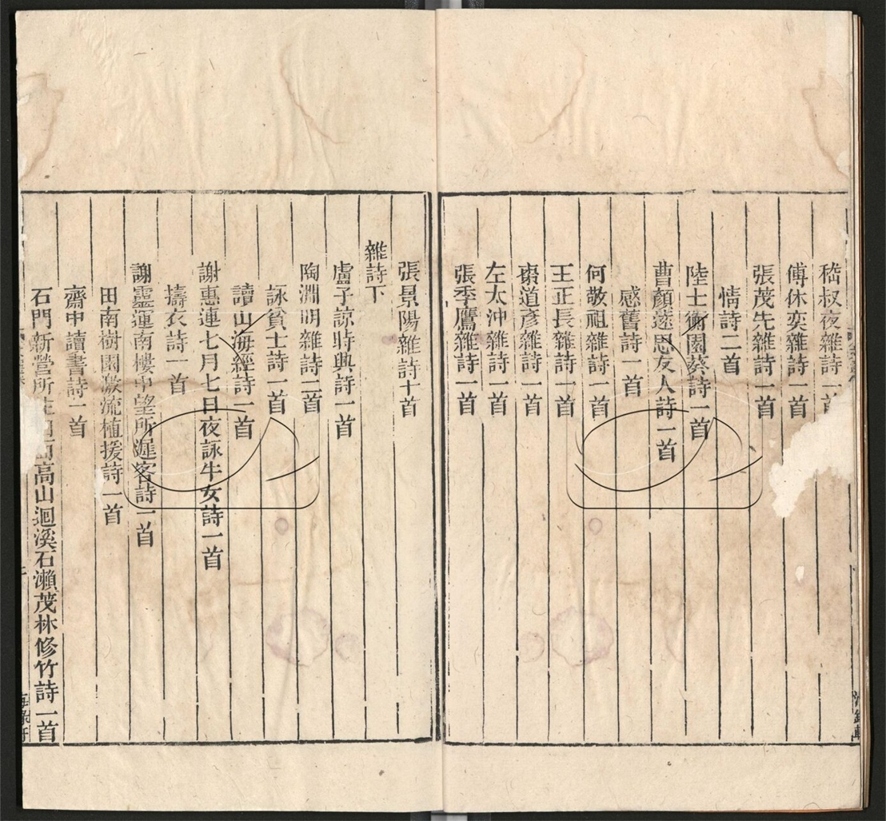 嵇叔夜雜詩一首
傅休奕雜詩一首
張茂先雜詩一首
情詩二首
陸士衡園葵詩一首
曹顏遠思友人詩一首
感舊詩一首
何敬祖雜詩一首
王正長雜詩一首
棗道彥雜詩一首
左太沖雜詩一首
張季鷹雜詩一首
張景陽雜詩十首
雜詩下
盧子諒時興詩一首
陶淵明雜詩二首
詠貧士詩一首
讀山海經詩一首
謝惠連七月七日夜詠牛女詩一首
擣衣詩一首
謝靈運南樓中望所遲客詩一首
田南樹園激流植援詩一首
齋中讀書詩一首
石門新營所住四面高山迴溪石瀨茂林修竹詩一首